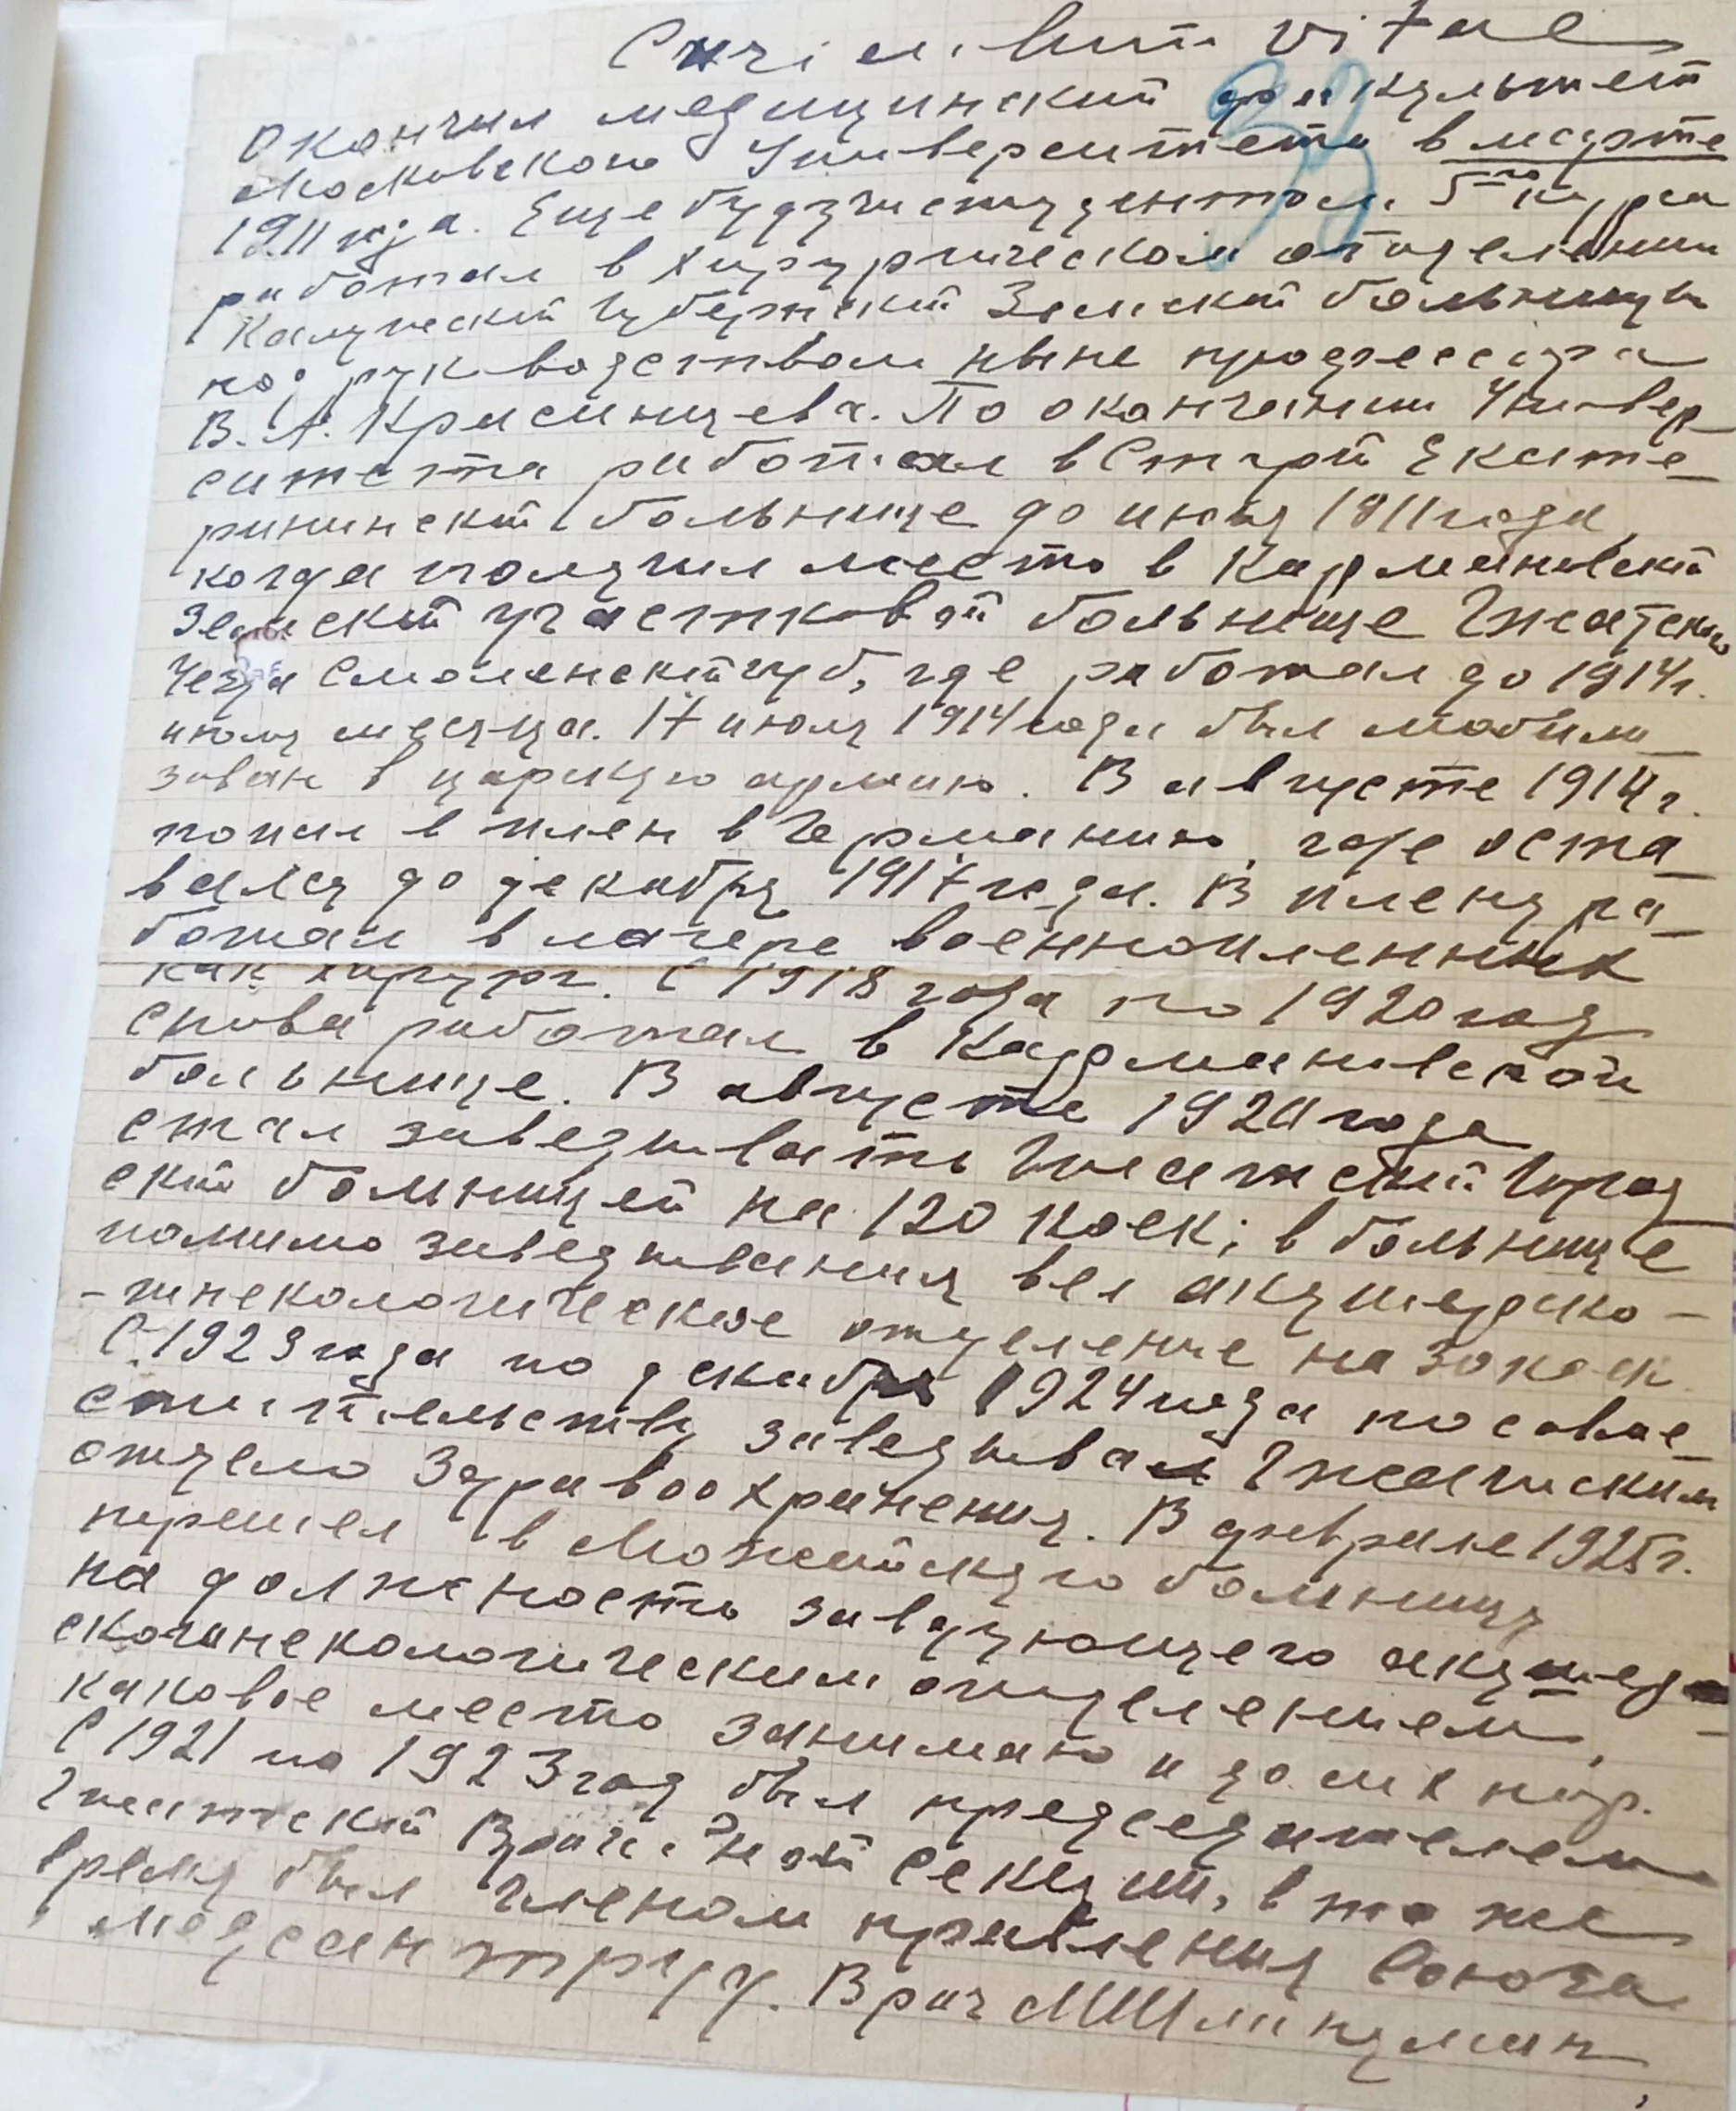 Curriculum vitae
39
Окончил медицинский факультет
Московского Университета в марте
1911 года. Еще будучи студентом 5го курса
работал в хирургическом отделении
Калужской Губернской Земской больницы
под руководством ныне профессора
В. А. Красинцева. По окончании Универ-
ситета работал в Старой Екате-
рининской больнице до июля 1911 года,
когда получил место в Кармановской
Земской участковой больнице Гжатского
Уезда Смоленской губ, где работал до 1914 г.
июля месяца. 17 июля 1914 года был мобили-
зован в царскую армию. В августе 1914 г.
попал в плен в Германию, где оста-
вался до декабря 1917 года. В плену ра-
ботал в лагере военнопленных
как хирург. С 1918 года по 1920 год
снова работал в Кармановской
больнице. В августе 1920 года
стал заведывать Гжатской Город-
ской больницей на 120 коек; в больнице
помимо заведывания вел акушерско-
-гинекологическое отделение на 30 коек.
С 1923 года по декабрь 1924 года по совме-
стительству заведывал Гжатским
отдело Здравоохранения. В феврале 1925 г.
перешел в Можайскую больницу
на должность заведующего акушер-
скогинекологическим отделением,
каковое место занимаю и до сих пор.
С 1921 по 1923 год был председателем
Гжатской Врачебной секции, в то же
время был членом правления Союза
Медсантруд. Врач МШлиндман